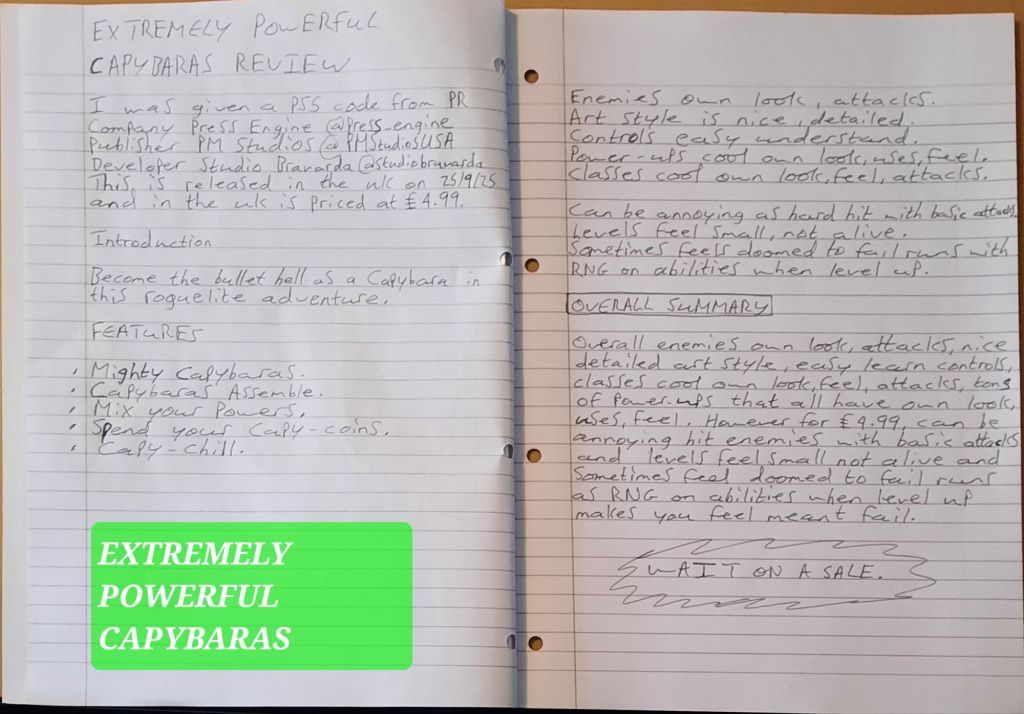 EXTREMELY POWERFUL
CAPYBARAS REVIEW
I was given a PS5 code from PR
Company Press Engine @press_engine
Publisher PM Studios @PMStudiosUSA
Developer Studio Bravarda @studiobravarda
This is released in the uk on 25/9/25
and in the uk is priced at £4.99.
Introduction
Become the bullet hell as a Capybara in
this roguelite adventure.
FEATURES
• Mighty Capybaras.
• Capybaras Assemble.
• Mix your Powers.
• Spend your Capy-coins.
• Capy-chill.
EXTREMELY
POWERFUL
CAPYBARAS
Enemies own look, attacks.
Art style is nice, detailed.
Controls easy understand.
Power-ups cool own look, uses, feel.
Classes cool own look, feel, attacks.
Can be annoying as hard hit with basic attacks.
Levels feel small, not alive.
Sometimes feels doomed to fail runs with
RNG on abilities when level up.
OVERALL SUMMARY
Overall enemies own look, attacks, nice
detailed art style, easy learn controls,
classes cool own look, feel, attacks, tons
of power-ups that all have own look,
uses, feel. However for £4.99, can be
annoying hit enemies with basic attacks
and levels feel small not alive and
Sometimes feel doomed to fail runs
as RNG on abilities when level up
makes you feel meant fail.
WAIT ON A SALE.